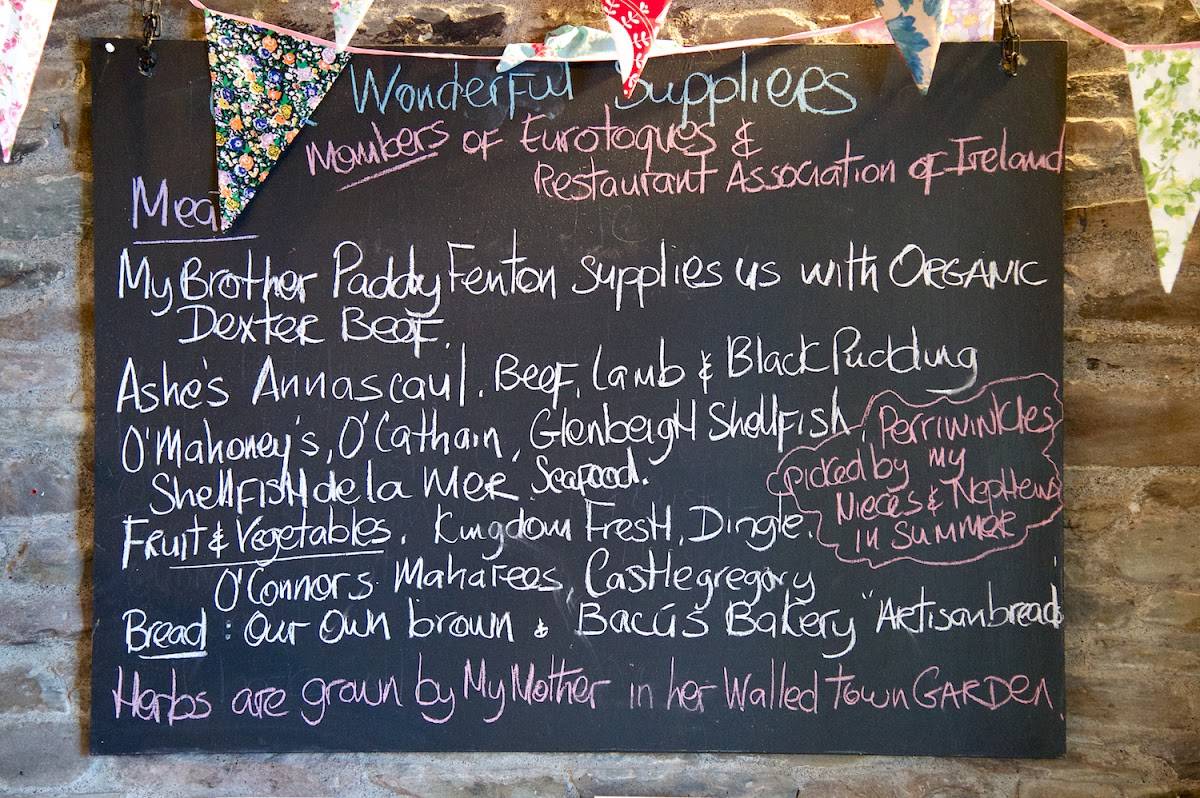 Wonderful Suppliers
Members of Eurotoques &
Restaurant Association of Ireland
Mea
My Brother Paddy Fenton supplies us with ORGANIC
Dexter Beef.
Ashe's Annascaul. Beef, Lamb & Black Pudding
O'Mahoney's, O'Cathain, Glenbeigh Shellfish,
Shellfish de la Mer Seafood.
Perriwinkles
picked by my
Nieces & Nephews
in Summer
Fruit & Vegetables. Kingdom Fresh, Dingle.
O'Connors Maharees, Castlegregory
Bread: Our Own brown & Bacús Bakery "Artisan bread
Herbs are grown by My Mother in her Walled Town GARDEN.